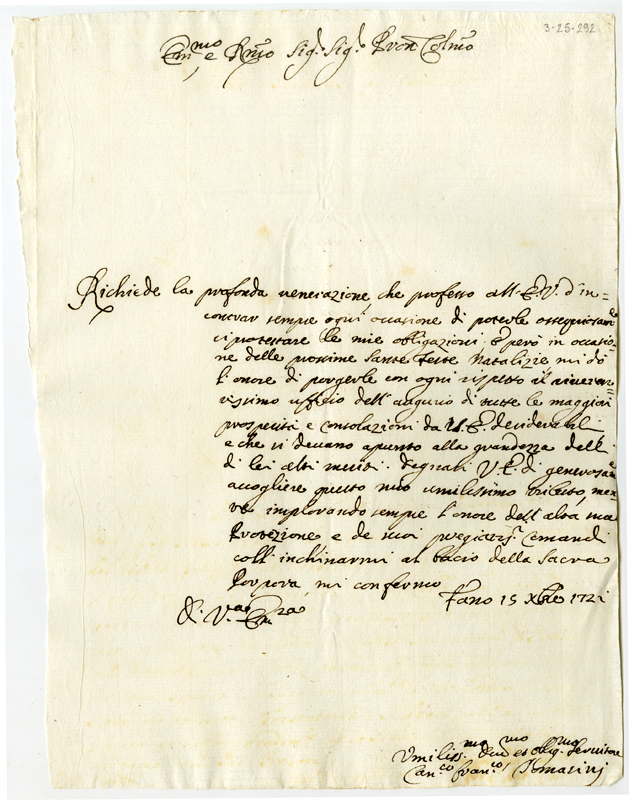 3-25-292
Em.mo e Rmo Sig.r Sig.r Pron Colmo
Richiede la profonda venerazione, che professo all'E.V. d'in=
contrar sempre ogni occasione di poterle ossequiosam.e
ripprotestare le mie obligazioni. e però in occasio=
ne delle prossime Sante Feste Natalizie mi dò
l'onore di porgerle con ogni rispetto il riveren=
tissimo uffizio dell'augurio di tutte le maggiori
prosperità e consolazioni da V.E. desiderabili
e che si devano apunto alla grandezza delli
di lei alti meriti. degnasi V.E. di generosam.e
accogliere questo mio umilissimo tributo, men=
tre implorando sempre l'onore dell'alta sua
Protezione e de suoi pregiatis.i Comandi
coll'inchinarmi al bacio della Sacra
Porpora, mi confermo
Di V.ra Em.za
Fano 15 Xbre 1721
Umiliss.mo Dev.mo et oblig.mo Servitore
Can.co Fran.co Tomasini